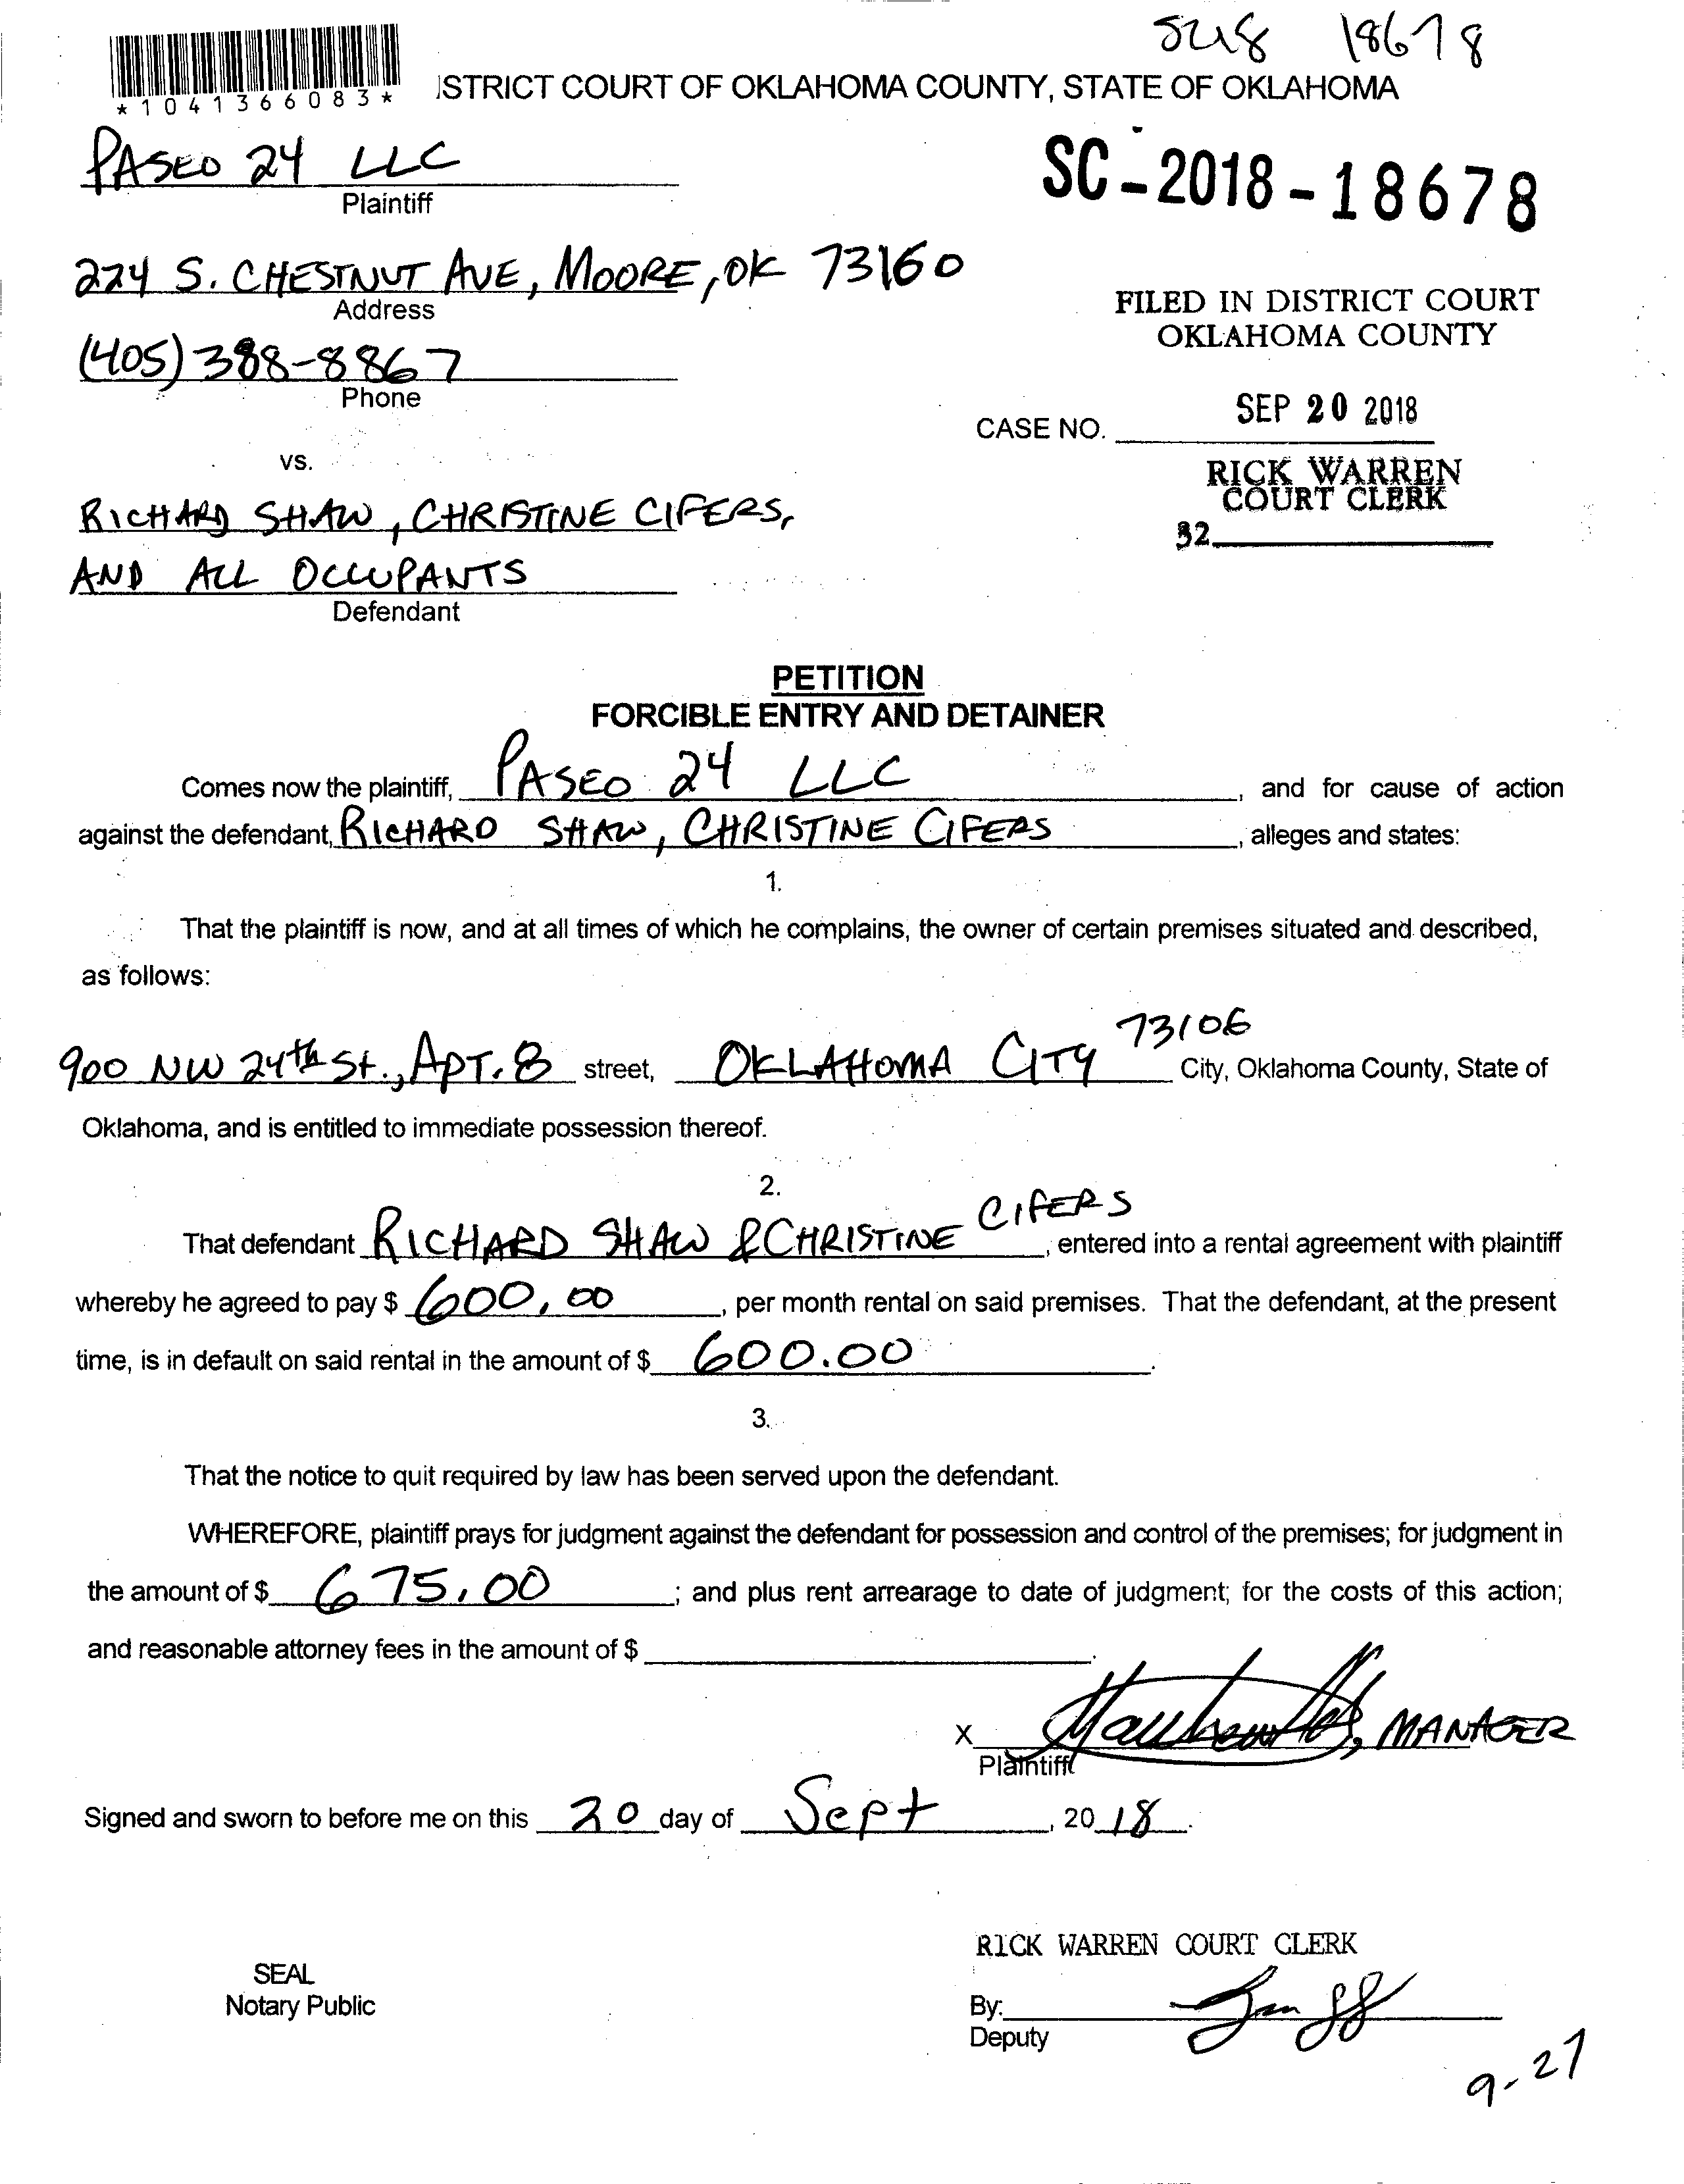 18678
*1041366083*
ISTRICT COURT OF OKLAHOMA COUNTY, STATE OF OKLAHOMA
PASEO 24 LLC
Plaintiff
SC-2018-18678
224 S. CHESTNUT AVE, MOORE, OK 73160
Address
FILED IN DISTRICT COURT
OKLAHOMA COUNTY
(405) 388-8867
Phone
SEP 20 2018
CASE NO.
vs.
RICK WARREN
COURT CLERK
32
RICHARD SHAW, CHRISTINE CIFERS,
AND ALL OCCUPANTS
Defendant
PETITION
FORCIBLE ENTRY AND DETAINER
Comes now the plaintiff, PASEO 24 LLC, and for cause of action
against the defendant, RICHARD SHAW, CHRISTINE CIFERS, alleges and states:
1.
That the plaintiff is now, and at all times of which he complains, the owner of certain premises situated and described,
as follows:
900 NW 24th St., APT. 8 street, OKLAHOMA CITY 73106 City, Oklahoma County, State of
Oklahoma, and is entitled to immediate possession thereof.
2.
That defendant RICHARD SHAW & CHRISTINE CIFERS, entered into a rental agreement with plaintiff
whereby he agreed to pay $ 600.00, per month rental on said premises. That the defendant, at the present
time, is in default on said rental in the amount of $ 600.00.
3.
That the notice to quit required by law has been served upon the defendant.
WHEREFORE, plaintiff prays for judgment against the defendant for possession and control of the premises; for judgment in
the amount of $ 675.00; and plus rent arrearage to date of judgment; for the costs of this action;
and reasonable attorney fees in the amount of $.
X , MANAGER
Plaintiff
Signed and sworn to before me on this 20 day of Sept, 2018.
RICK WARREN COURT CLERK
SEAL
Notary Public
By:
Deputy
9-27